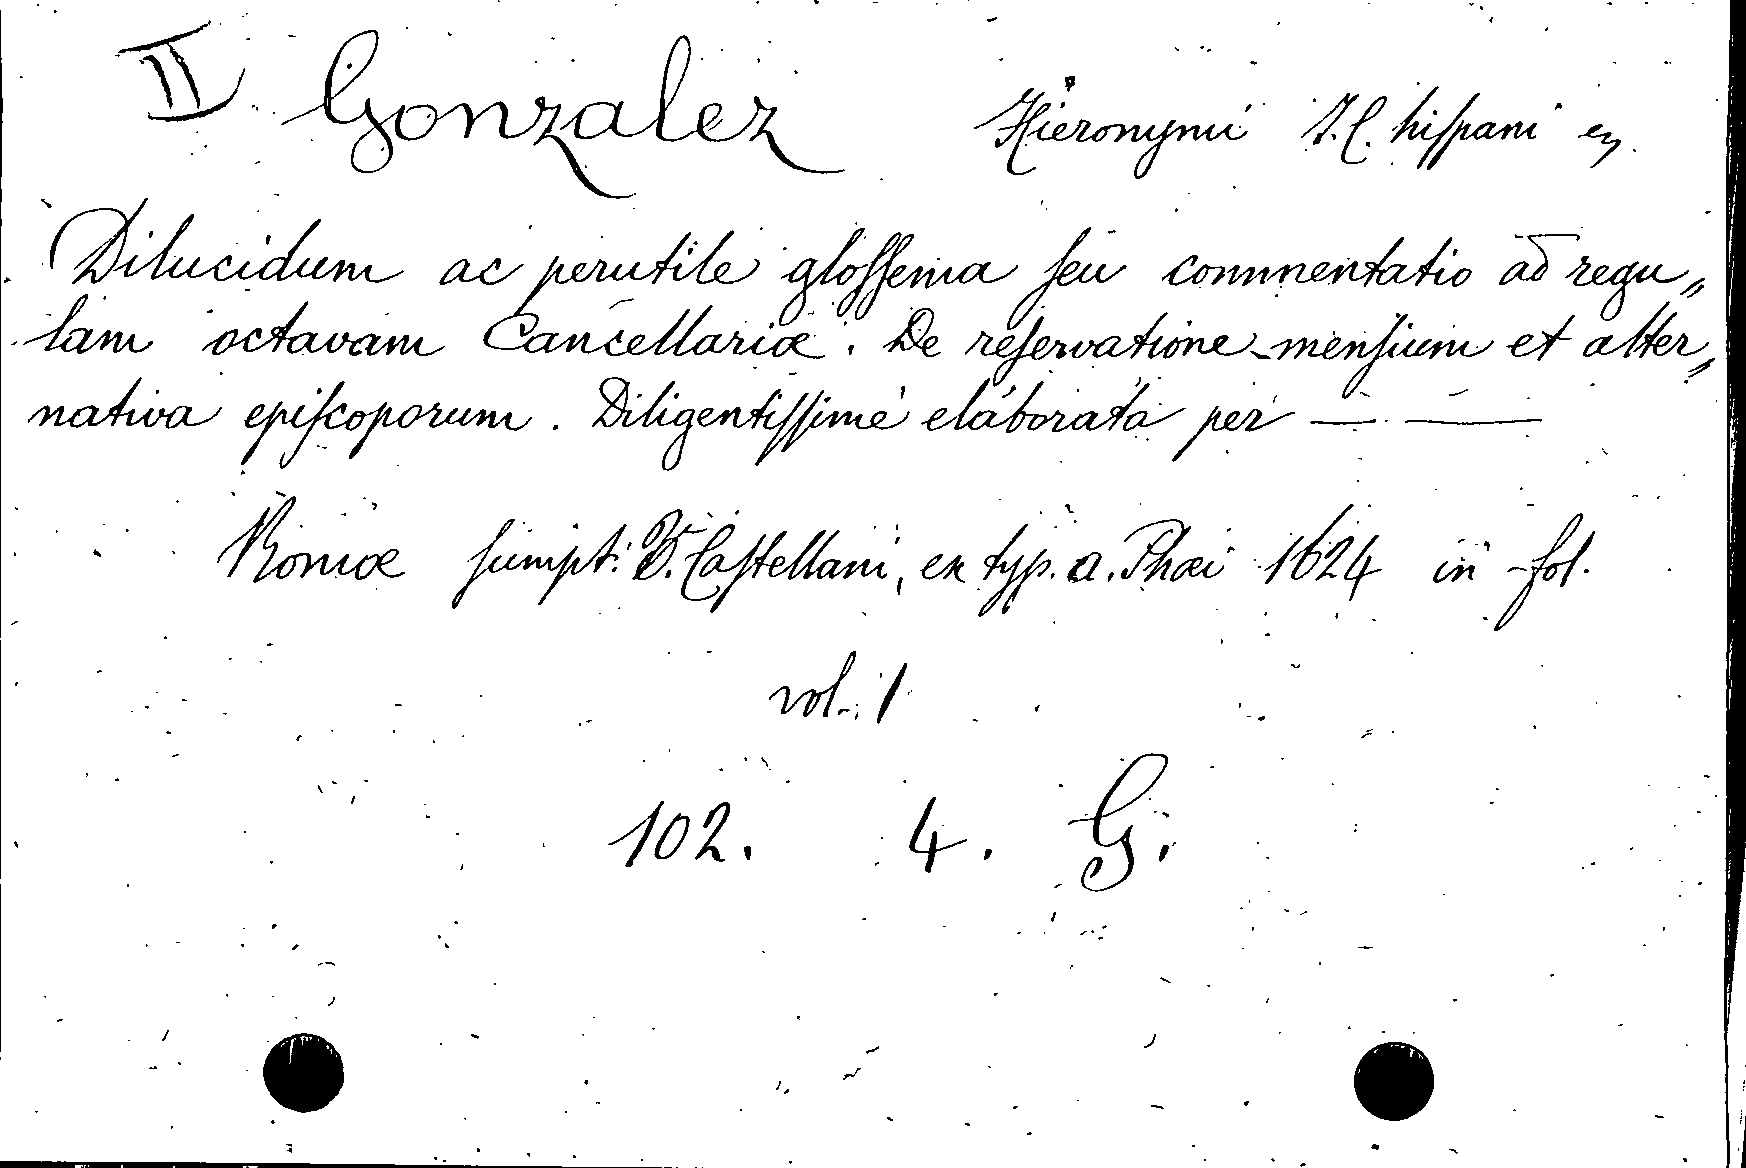 II Gonzalez Hieronymi J.C. hiſpani
Dilucidum ac perutile gloſſema ſeu commentatio ad regu„
lam octavam Cancellariæ. De reſervatione menſium et alter„
nativa epiſcoporum. Diligentiſſime elaborata per — —
Romæ ſumpt. B. Caſtellani, ex typ. a. Phæi 1624 in fol.
vol. 1
102. 4. G.